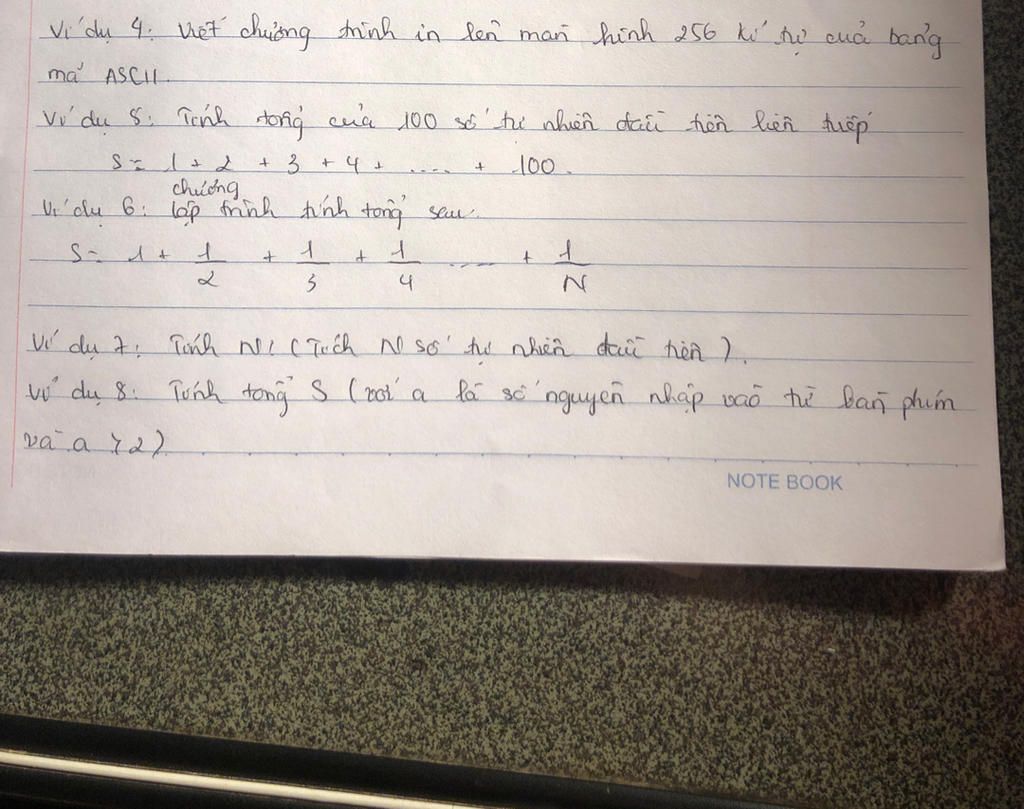 Ví dụ 4: Viết chương trình in lên màn hình 256 kí tự của bảng
mã ASCII.
Ví dụ 5: Tính tổng của 100 số tự nhiên đầu tiên liên tiếp
S = 1 + 2 + 3 + 4 + .... + 100.
chương
Ví dụ 6: lập trình tính tổng sau:
S = 1 + 1/2 + 1/3 + 1/4 .... + 1/N
Ví dụ 7: Tính N! (Tích N số tự nhiên đầu tiên).
Ví dụ 8: Tính tổng S (với a là số nguyên nhập vào từ bàn phím
và a > 2)
NOTE BOOK